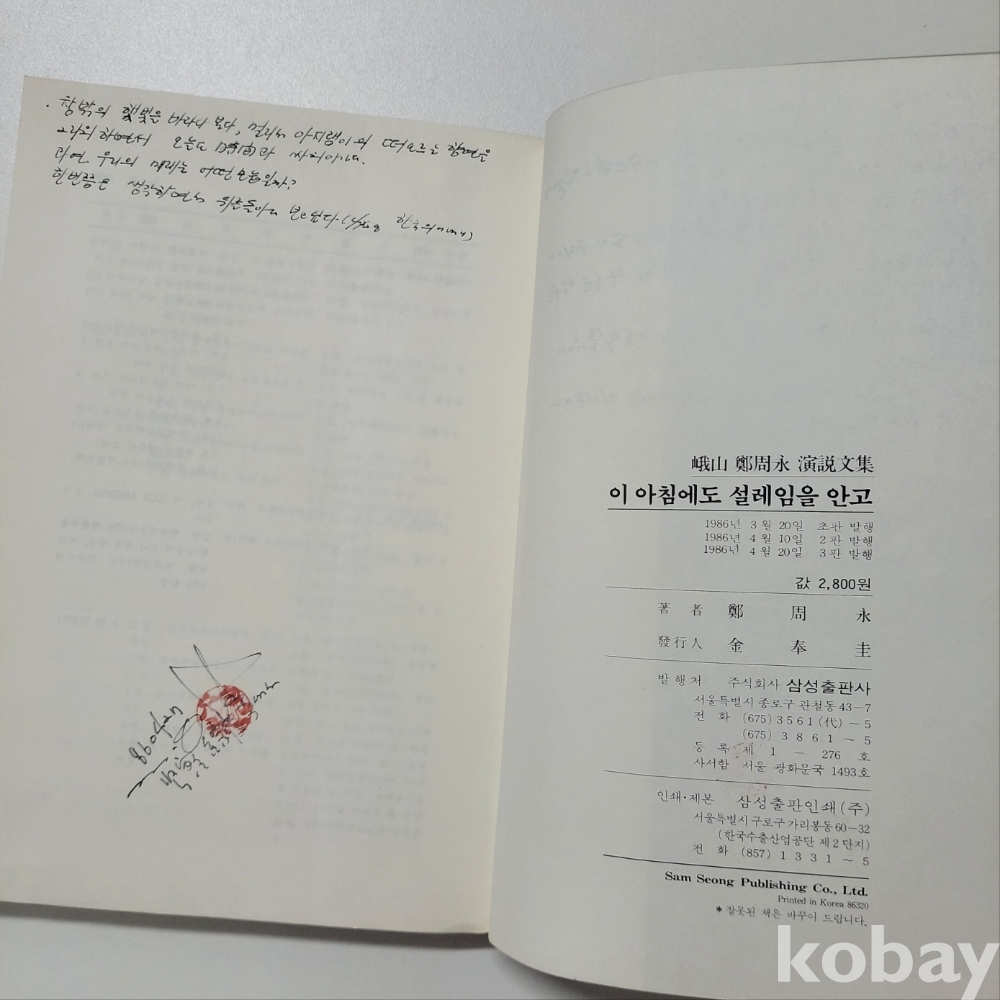 창밖의 햇빛을 바라다 본다, 멀리서 아지랭이의 떠오르는 향연을
하면서 오늘도 時間과 싸워
과연 우리의 미래는 어떤
한번쯤은 생각하면서
峨山 鄭周永 演説文集
이 아침에도 설레임을 안고
1986년 3월 20일 초판 발행
1986년 4월 10일 2판 발행
1986년 4월 20일 3판 발행
값 2,800원
著者 鄭周永
發行人 金奉圭
발행처 주식회사 삼성출판사
서울특별시 종로구 관철동 43-7
전화 (675) 3561 (代) ~ 5
(675) 3861 ~ 5
등록 제 1 - 276 호
사서함 서울 광화문국 1493호
인쇄·제본 삼성출판인쇄(주)
서울특별시 구로구 가리봉동 60-32
(한국수출산업공단 제2단지)
전화 (857) 1331 ~ 5
Sam Seong Publishing Co., Ltd.
Printed in Korea 86320
* 잘못된 책은 바꾸어 드립니다.
kobay